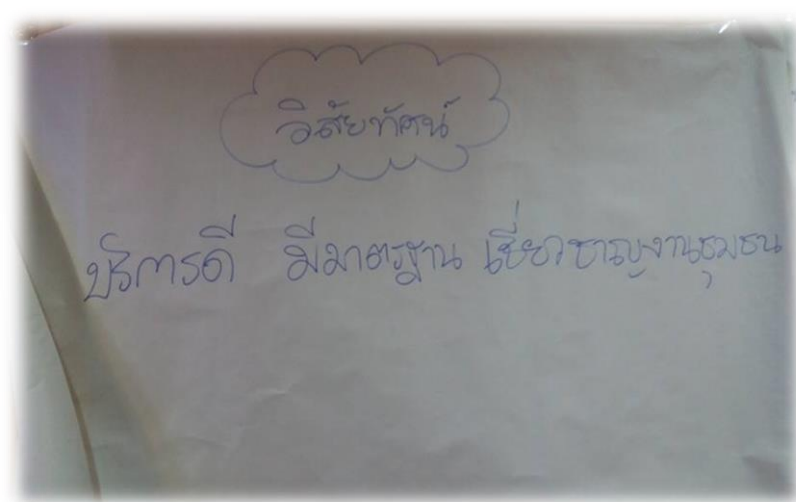 วิสัยทัศน์
บริการดี มีมาตรฐาน เชี่ยวชาญงานชุมชน